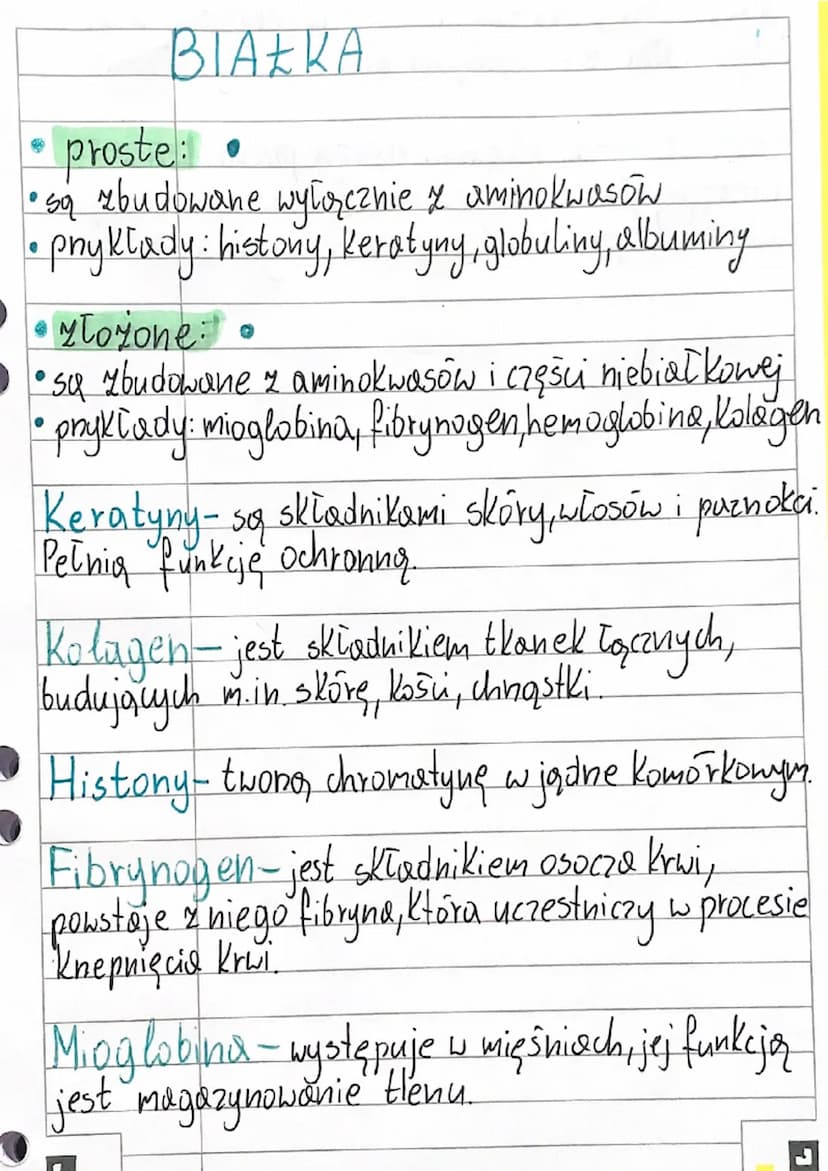 BIAŁKA
• proste: •
• są zbudowane wyłącznie z aminokwasów
• przykłady: histony, keratyny, globuliny, albuminy
• złożone: •
• są zbudowane z aminokwasów i części niebiałkowej
• przykłady: mioglobina, fibrynogen, hemoglobina, kolagen
Keratyny- są składnikami skóry, włosów i paznokci.
Pełnią funkcję ochronną.
Kolagen- jest składnikiem tkanek łącznych,
budujących m.in. skórę, kości, chrząstki.
Histony- tworzą chromatynę w jądrze komórkowym.
Fibrynogen- jest składnikiem osocza krwi,
powstaje z niego fibryna, która uczestniczy w procesie
krzepnięcia krwi.
Mioglobina- występuje w mięśniach, jej funkcją
jest magazynowanie tlenu.